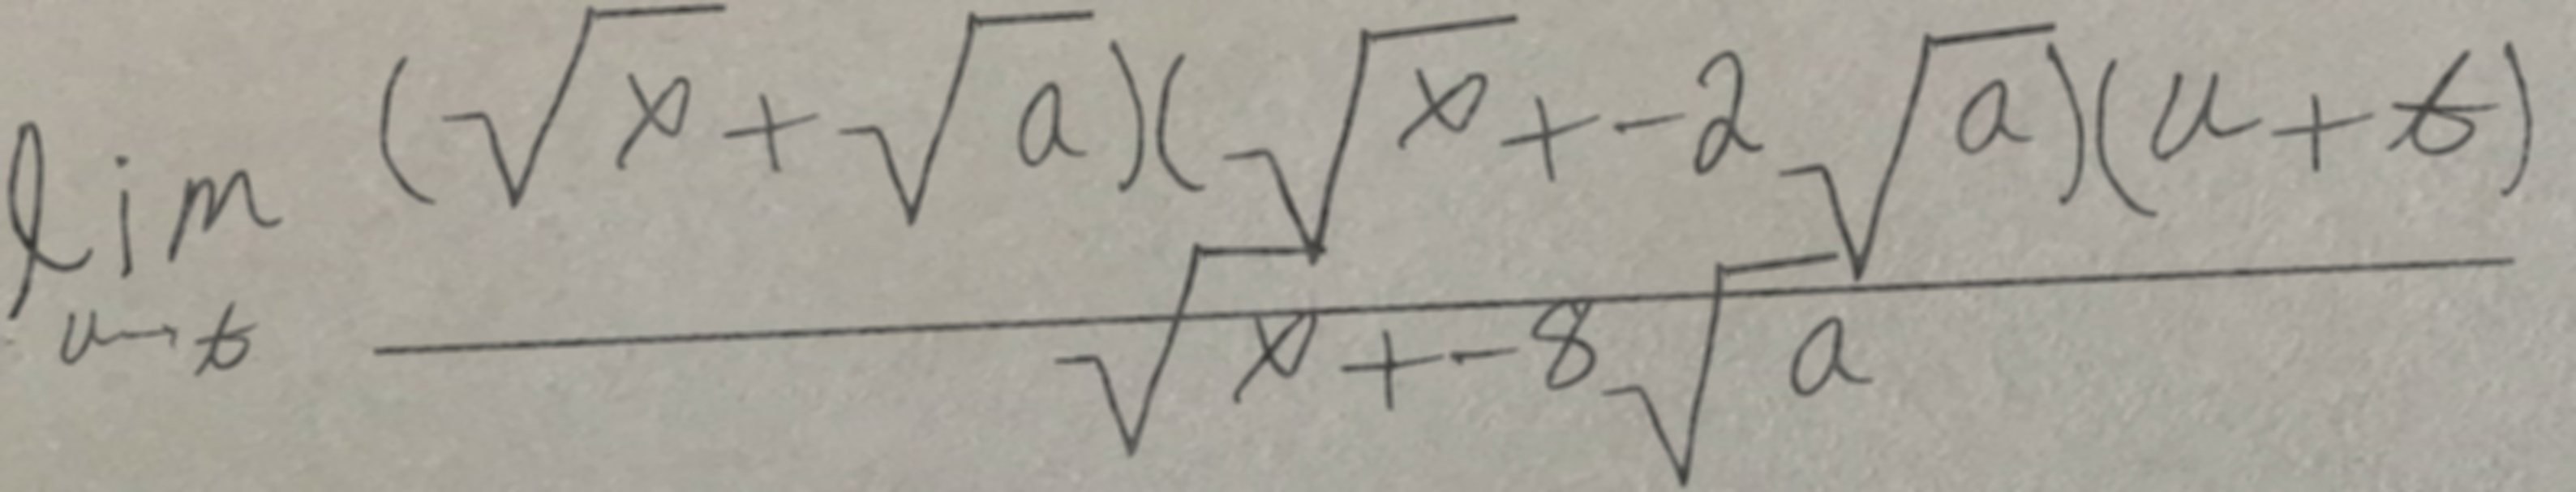 \lim_{u \to t} \frac{(\sqrt{x} + \sqrt{a})(\sqrt{x} + -2\sqrt{a})(u + t)}{\sqrt{x} + -8\sqrt{a}}